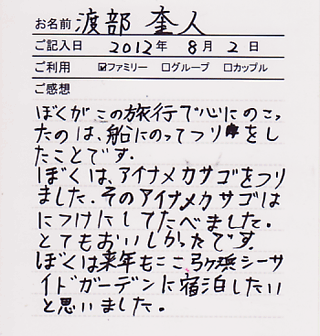 お名前 渡部 奎人
ご記入日 2012年 8月 2日
ご利用 ☑ファミリー □グループ □カップル
ご感想
ぼくがこの旅行で心にのこっ
たのは、船にのってつりをし
たことです.
ぼくは、アイナメカサゴをつり
ました.そのアイナメカサゴは
につけにしてたべました.
とてもおいしかたです.
ぼくは来年もここ弓ヶ浜シーサ
イドガーデンに宿泊したい
と思いました.